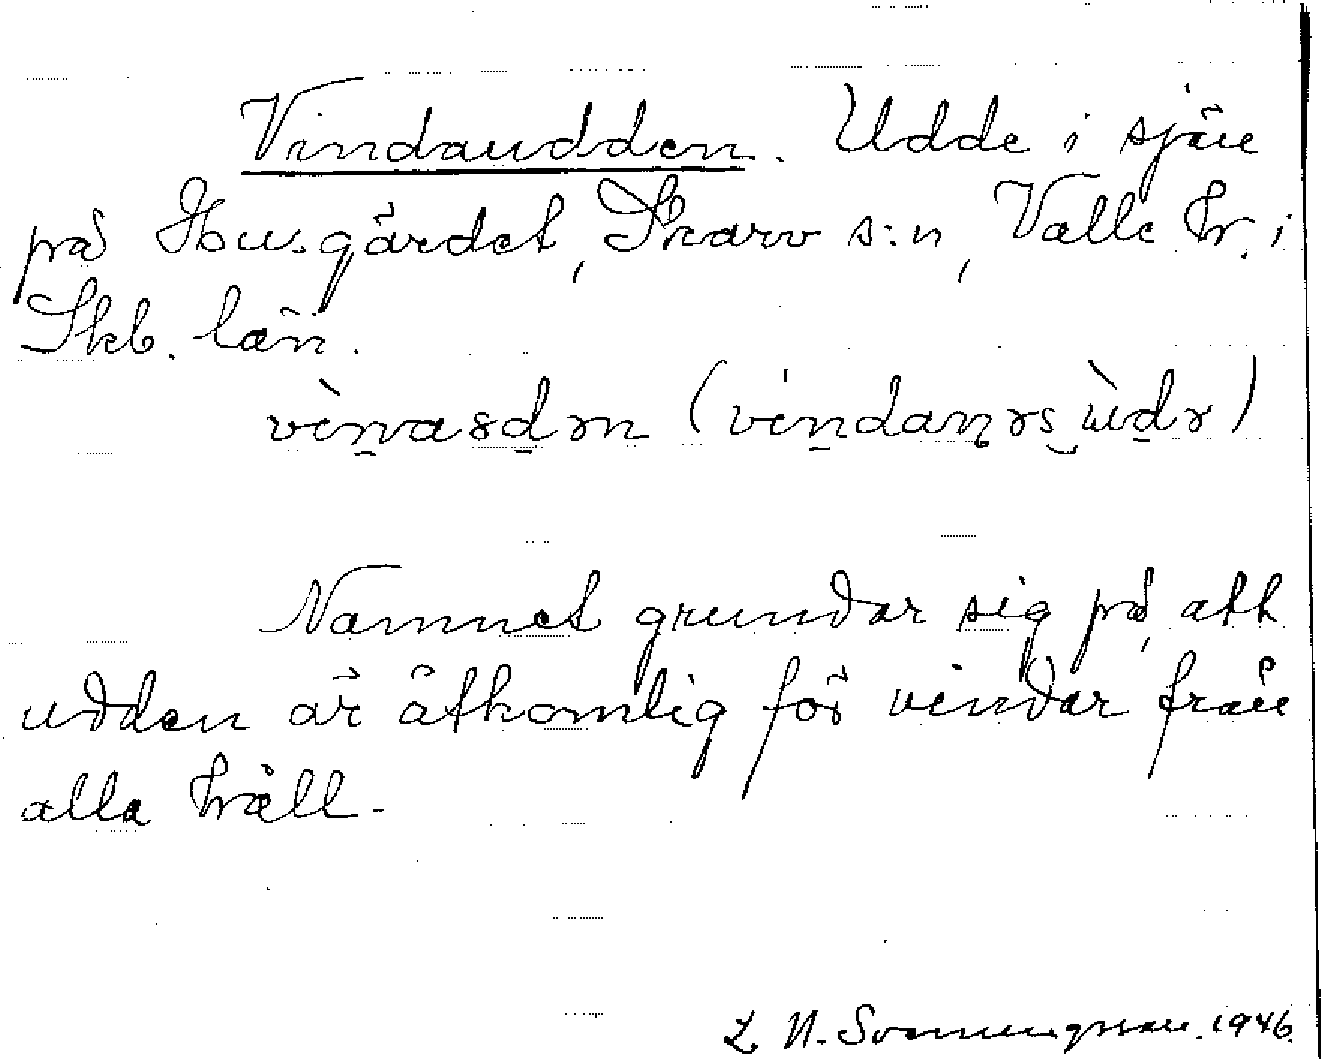 Vindaudden. Udde i sjön
på Husgärdet, Skarv s:n, Valle hr. i
Skb. län.
Namnet grundar sig på, att
udden är åtkomlig för vindar från
alla håll.
L. N. 1946.